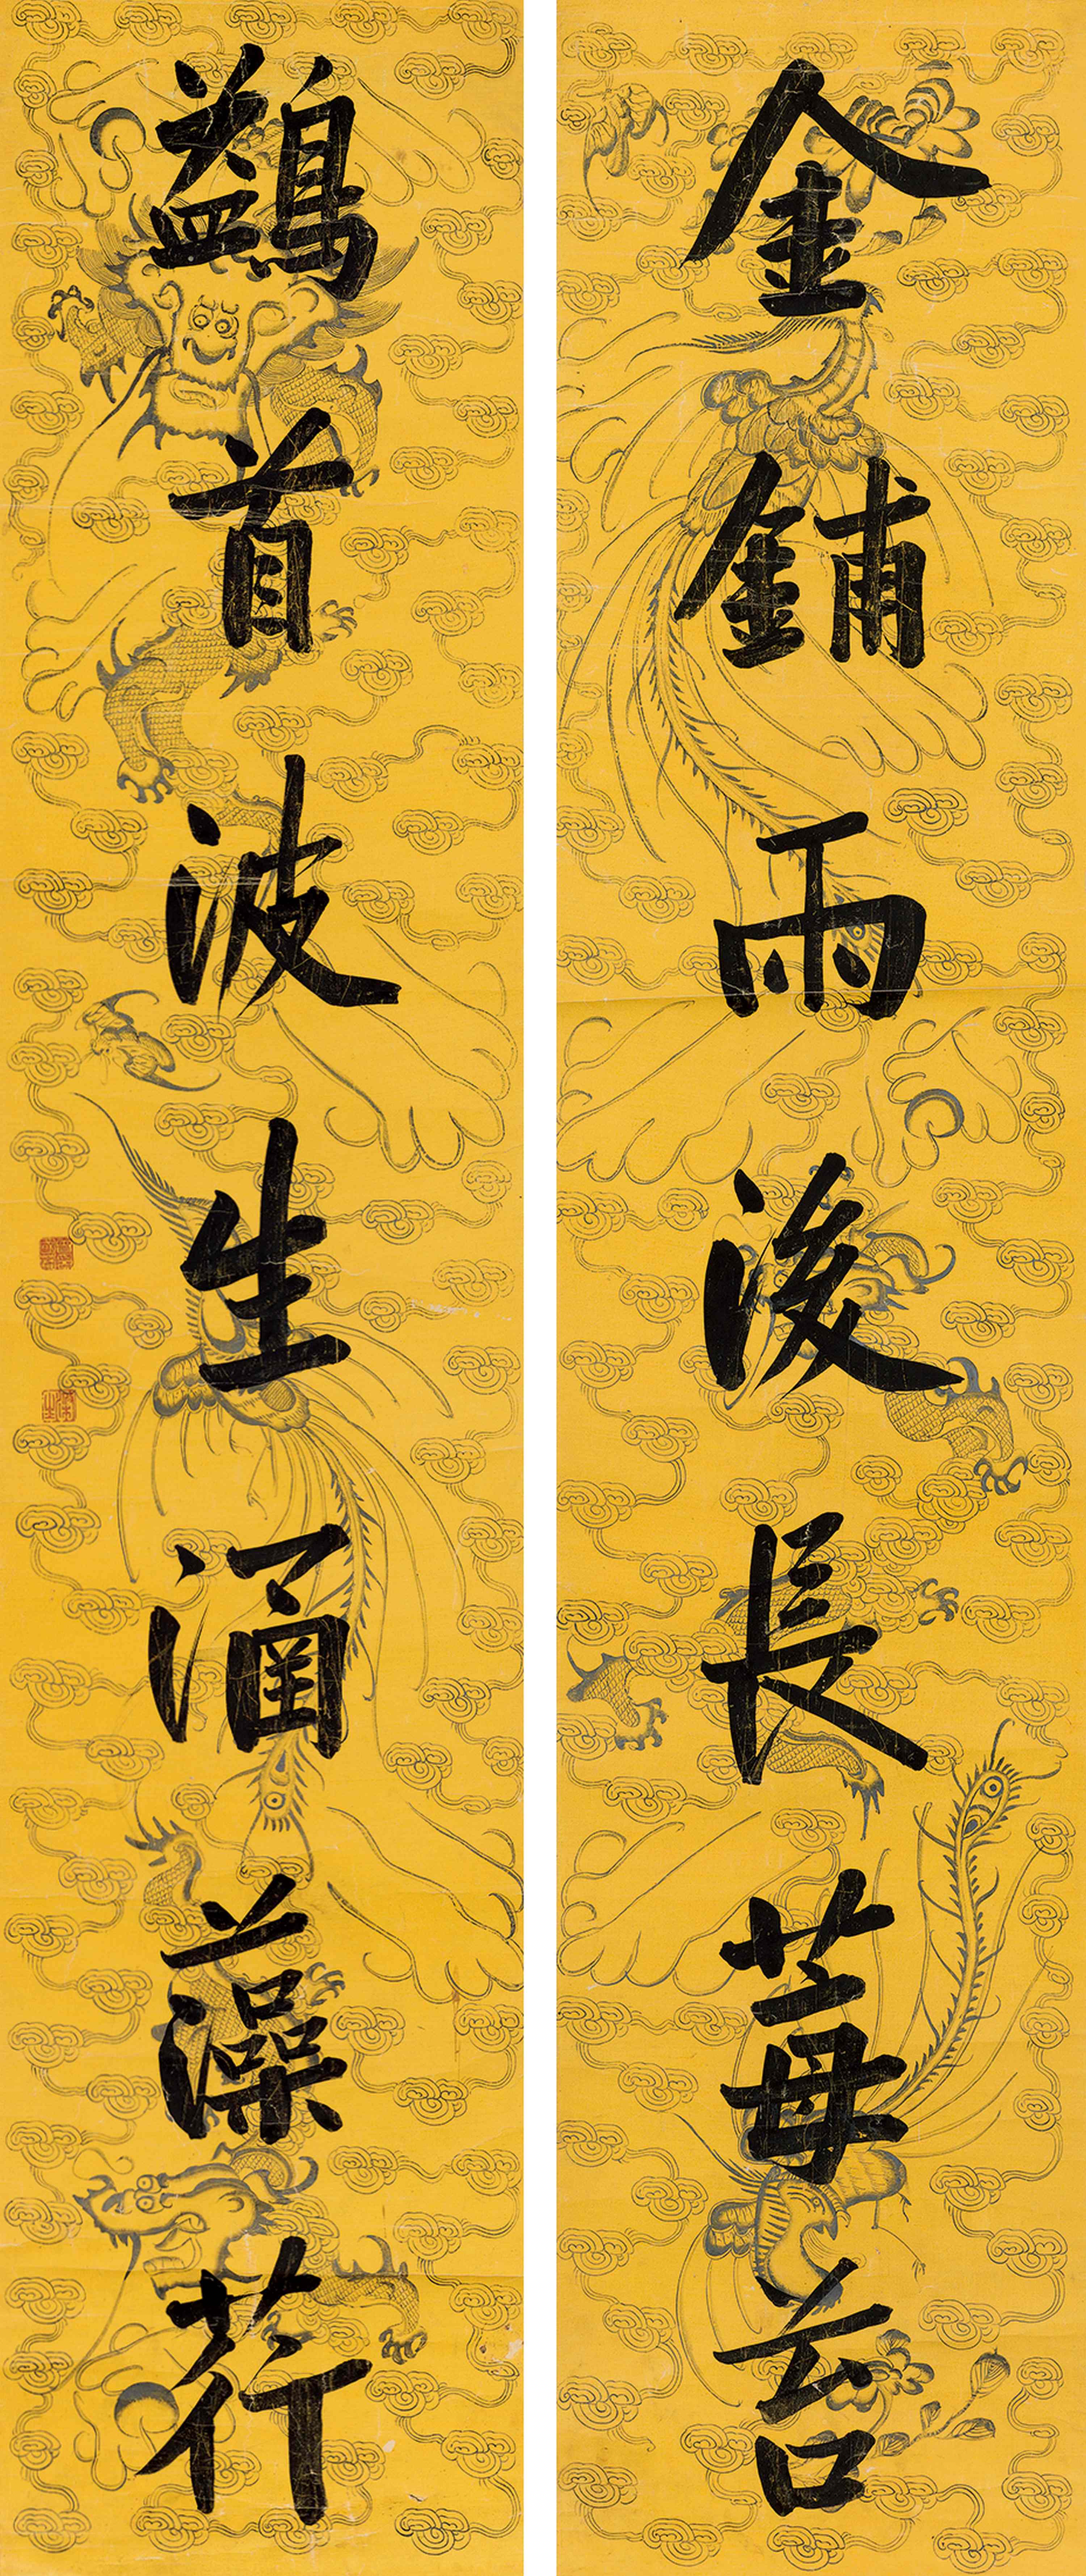 金鋪雨後長莓苔
鷁首波生涵藻荇